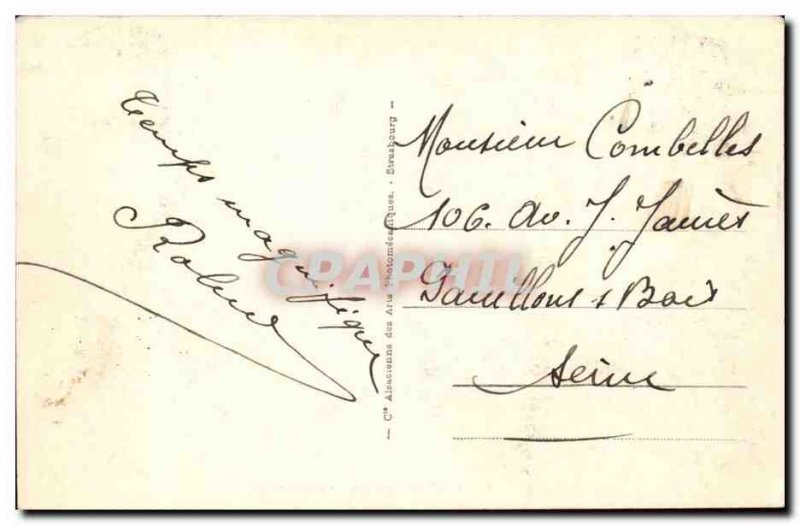 Temps magnifique
Robert
— Cie Alsacienne des Arts Photomécaniques. - Strasbourg —
CPAPHIL
Monsieur Combelles
106. Av. J. Jaurès
Pavillons s Bois
Seine